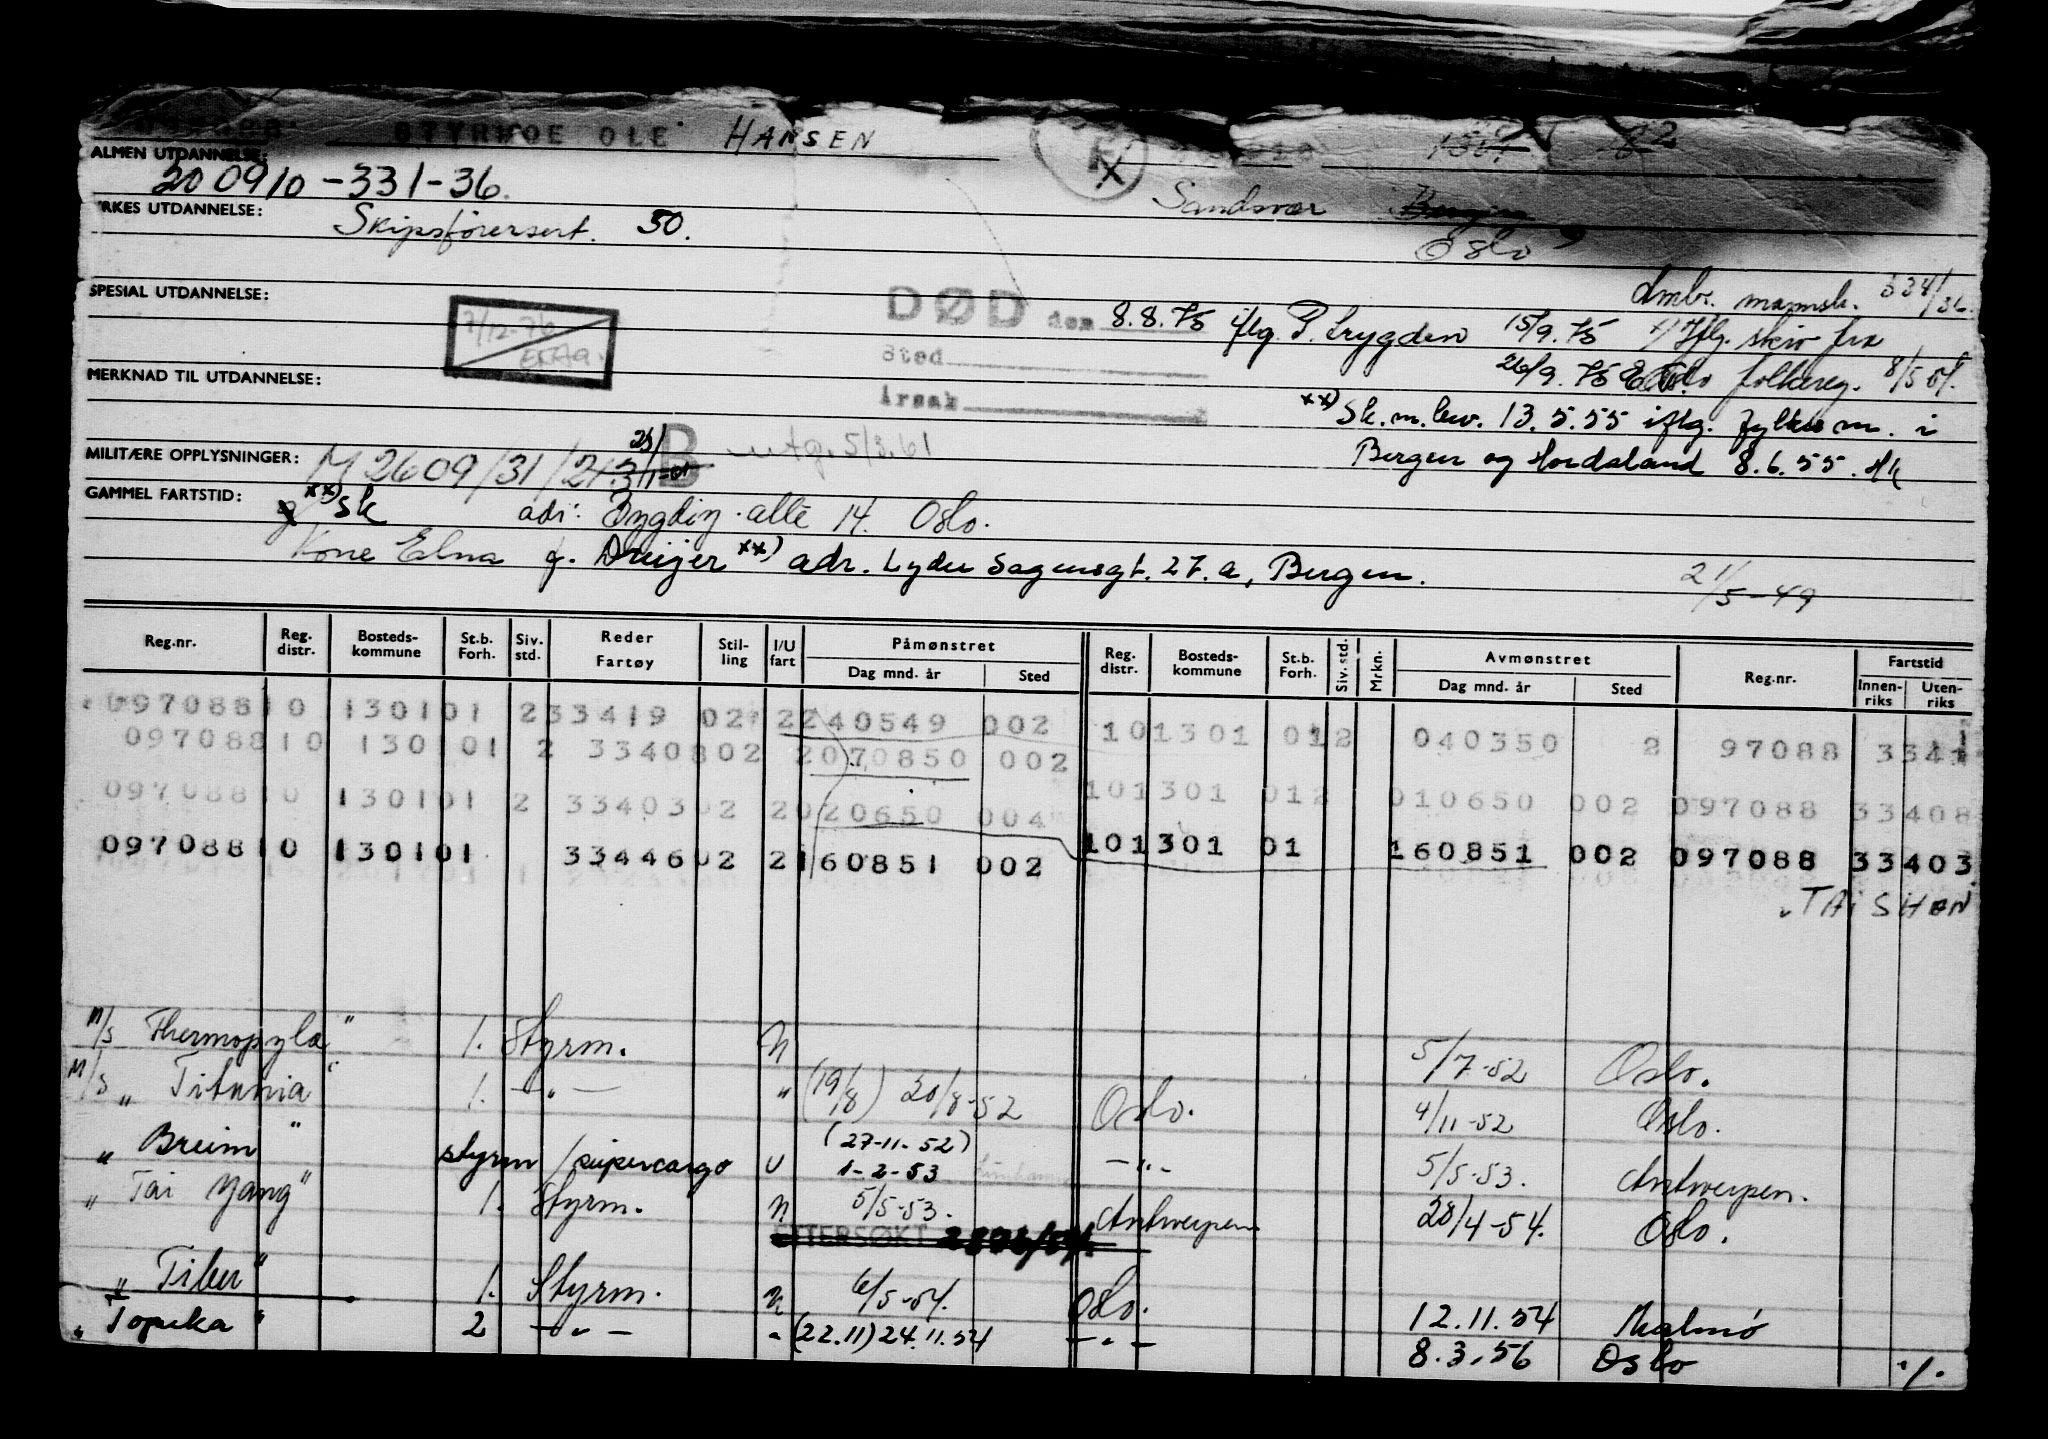 OLE HANSEN
ALMEN UTDANNELSE:
200910-331-36.
Sandsvær
YRKES UTDANNELSE:
Skipsførersert. 50.
Oslo
SPESIAL UTDANNELSE:
7/12-76
DØD den 8.8.75 iflg. P. trygden 15/9.75
Sted
Årsak
26/9.75
x) Iflg. skriv fra
Oslo folkereg. 8/5 54.
xx) Sk.m.bev. 13.5.55 iflg. fylkesm. i
Bergen og Hordaland 8.6.55. HK
MERKNAD TIL UTDANNELSE:
MILITÆRE OPPLYSNINGER: M 2609/31/2
B utg. 5/3.61
GAMMEL FARTSTID:
xx) sk adr: alle 14. Oslo.
Kone Edna f. Dreijer xx) adr. Lyder Sagensgt. 27.a, Bergen.
21/5-49
Reg.nr. Reg. distr. Bosteds- kommune St.b. Forh. Siv. std. Reder Fartøy Stil- ling I/U fart Påmønstret Dag mnd. år Sted Reg. distr. Bosteds- kommune St.b. Forh. Siv. std. Mrkn. Avmønstret Dag mnd. år Sted Reg.nr. Fartstid Innen- riks Uten- riks
09708810 130101 233419 02 2240549 002 101301 012 040350 2 97088 3341
09708810 130101 2 3340802 2070850 002
09708810 130101 2 3340302 2020650 004 101301 012 010650 002 097088 33408
09708810 130101 3344602 2160851 002 101301 01 160851 002 097088 33403
"TAI SHAN
M/S Thermopylæ" 1. Styrm. U 5/7-52 Oslo.
M/S "Titania" 1. —"— " (19/8) 20/8-52 Oslo. 4/11-52 Oslo.
" Breim" styrm/supercargo U (27-11-52) 1-2-53 —"— 5/5-53. Antwerpen.
" Tai Yang" 1. Styrm. U 5/5-53. Antwerpen 28/4-54. Oslo.
ETTERSØKT
" Tiber" 1. Styrm. U 6/5-54. Oslo. 12.11.54 Malmö
" Topeka" 2 —"— " (22.11) 24.11.54 —"— 8.3.56 Oslo ./.